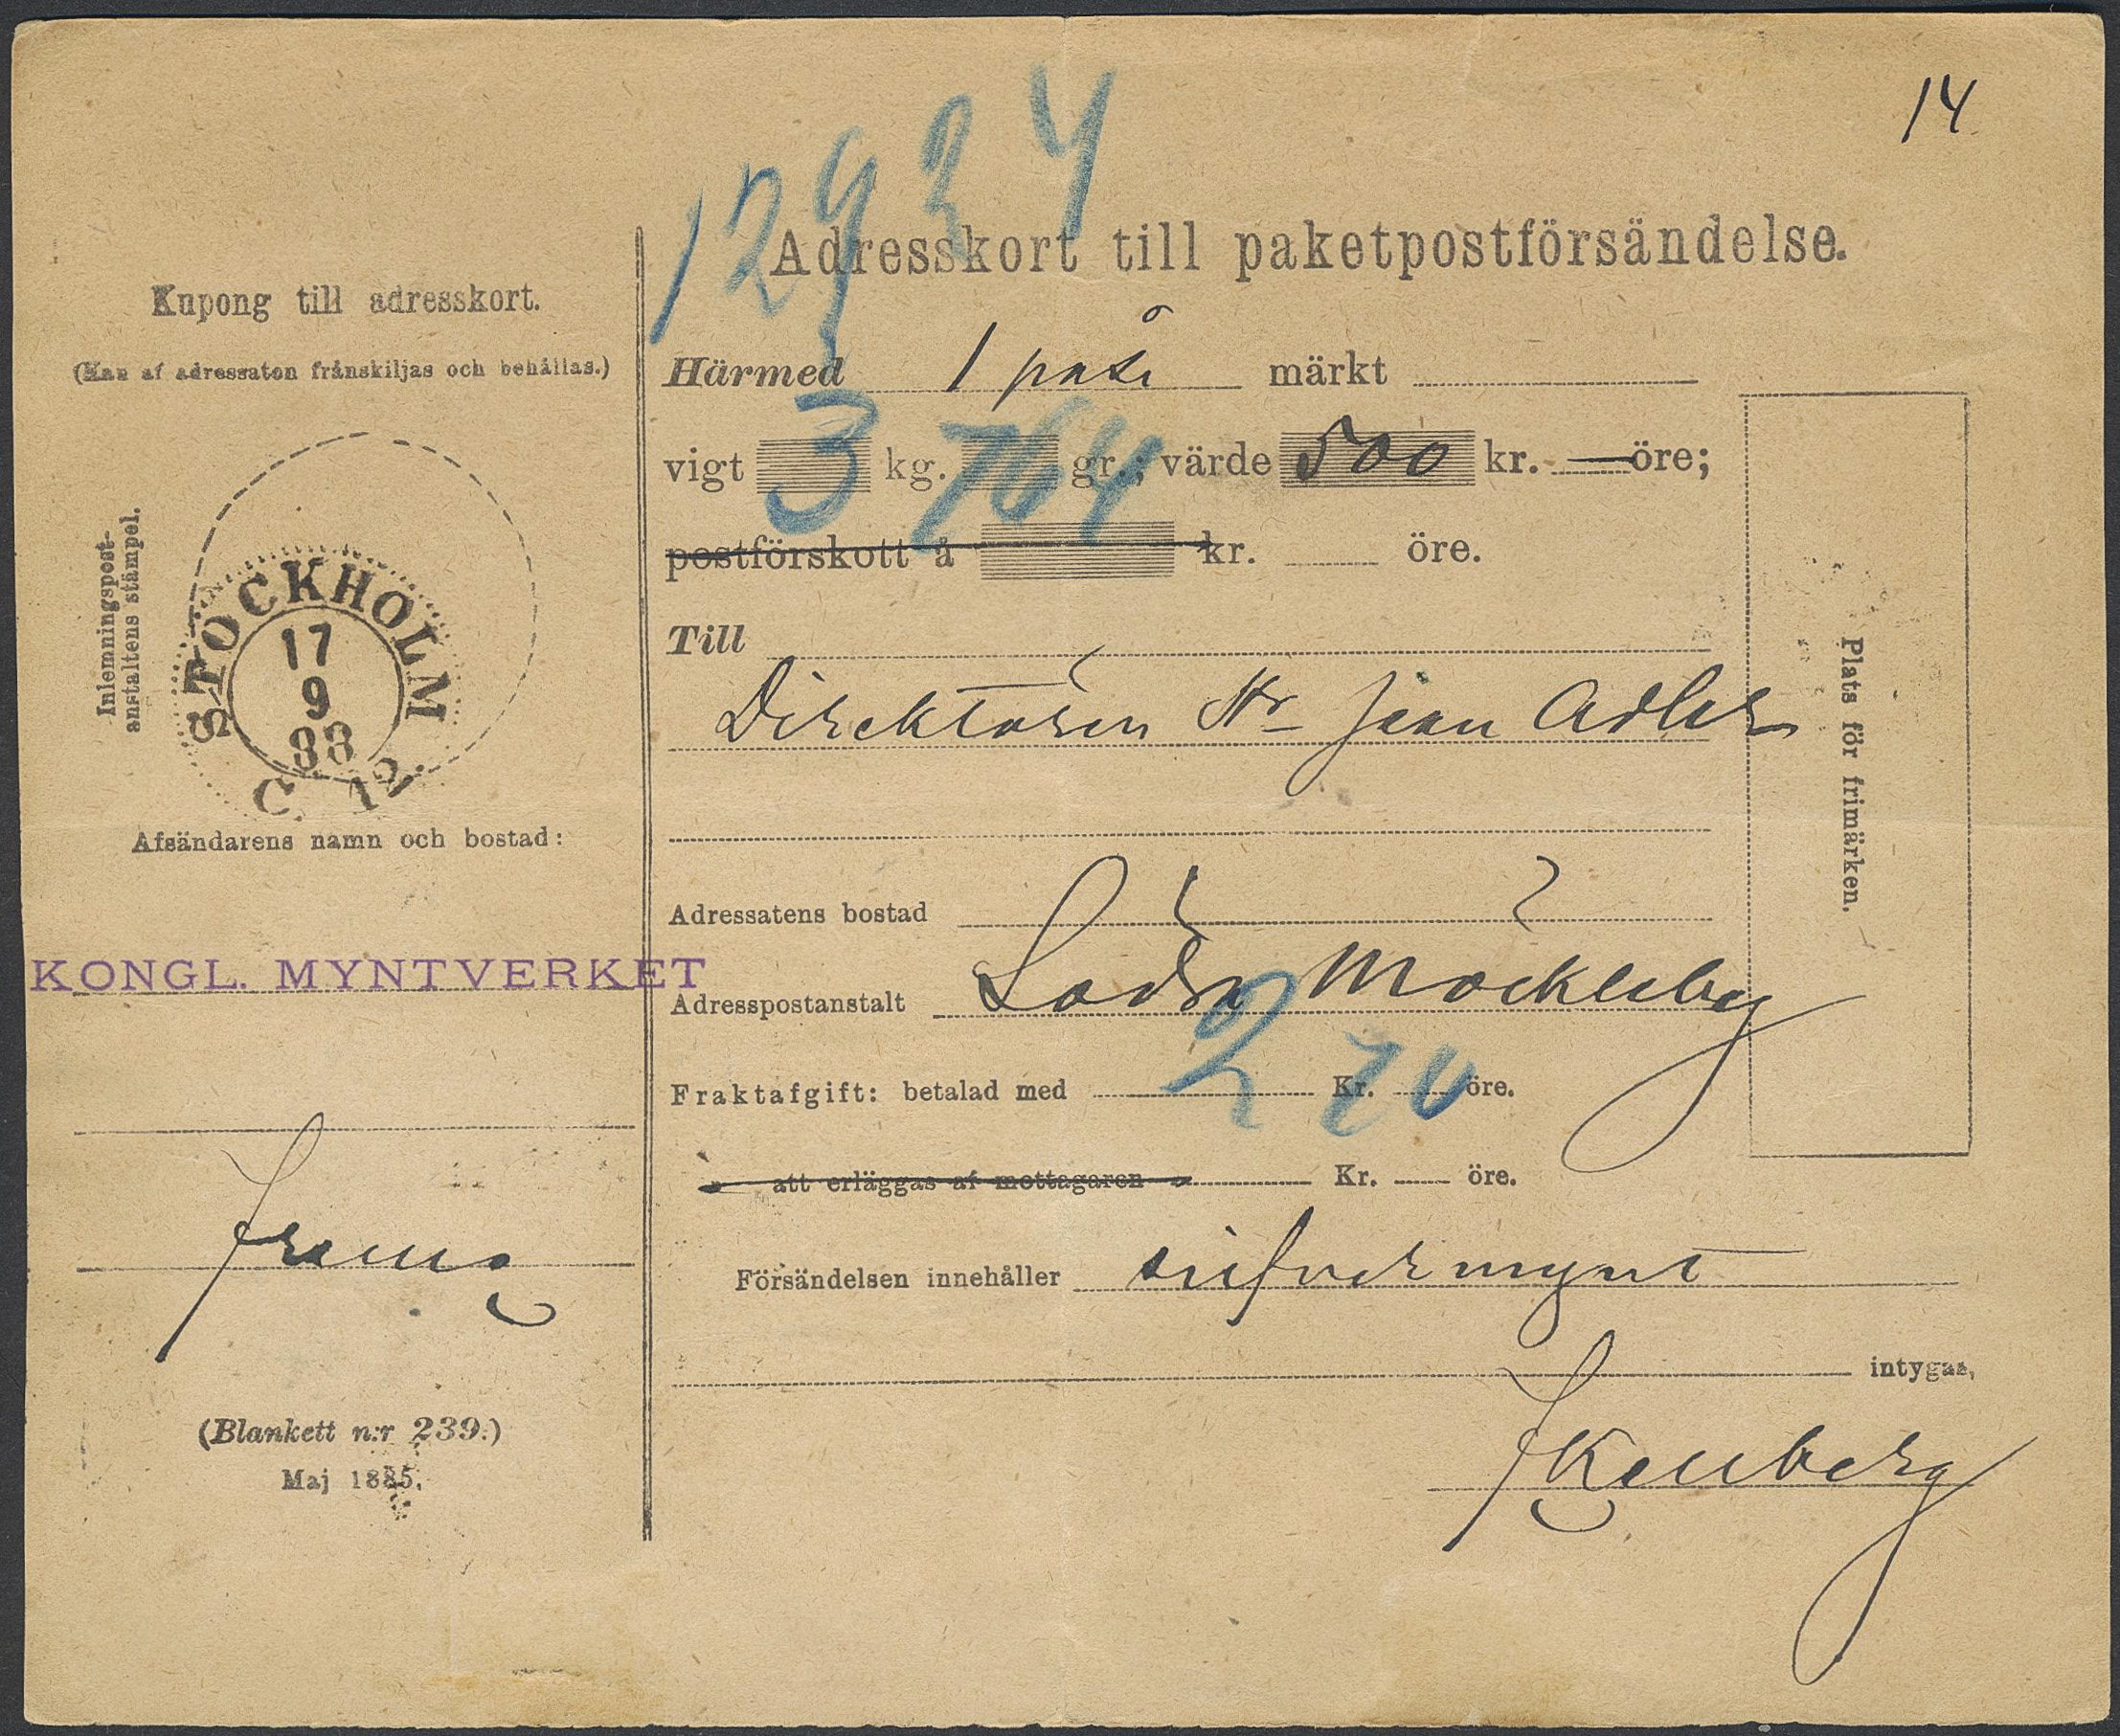 14
12934
Kupong till adresskort.
(Kan af adressaten frånskiljas och behållas.)
Inlemningspost-
anstaltens stämpel.
STOCKHOLM
17
9
88
C. 12.
Afsändarens namn och bostad:
KONGL. MYNTVERKET
(Blankett n:r 239.)
Maj 1885.
Adresskort till paketpostförsändelse.
Härmed 1 påse märkt
vigt 3 kg. 764 gr.; värde 500 kr. — öre;
postförskott å kr. öre.
Till
Direktören Hr Jean Adler
Adressatens bostad
Adresspostanstalt Södra Möckleby
Fraktafgift: betalad med 2 Kr. 70 öre.
" att erläggas af mottagaren " Kr. öre.
Försändelsen innehåller silfvermynt
intygas,
Plats för frimärken.